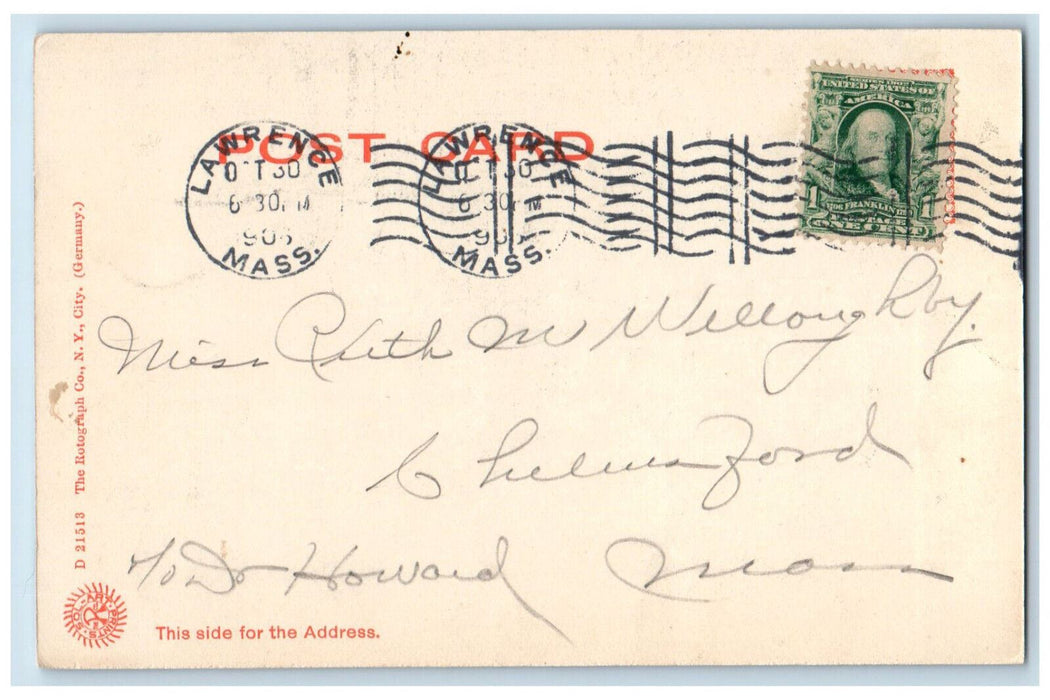 POST CARD
LAWRENCE
OCT 30
6 30 PM
190
MASS.
LAWRENCE
OCT 30
6 30 PM
190
MASS.
SERIES 1902
UNITED STATES OF
AMERICA
FRANKLIN
POSTAGE
1 ONE CENT 1
Miss Ruth M Willoughby.
Chelmsford
c/o Dr Howard Mass
D 21513 The Rotograph Co., N. Y., City. (Germany.)
SOL-ART PRINTS
This side for the Address.